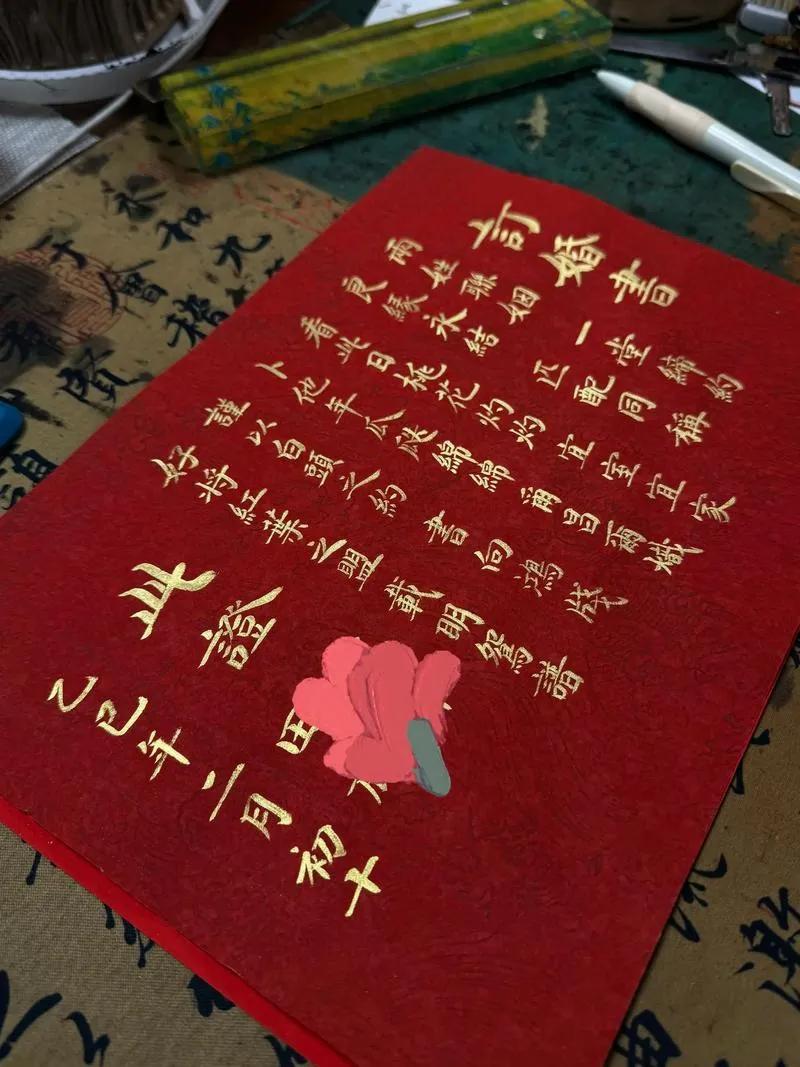 訂婚書
兩姓聯姻 一堂締約
良緣永結 匹配同稱
看此日桃花灼灼 宜室宜家
卜他年瓜瓞綿綿 爾昌爾熾
謹以白頭之約 書向鴻箋
好將紅葉之盟 載明鴛譜
此證
田
乙巳年二月初十
永和九
于會稽
賢